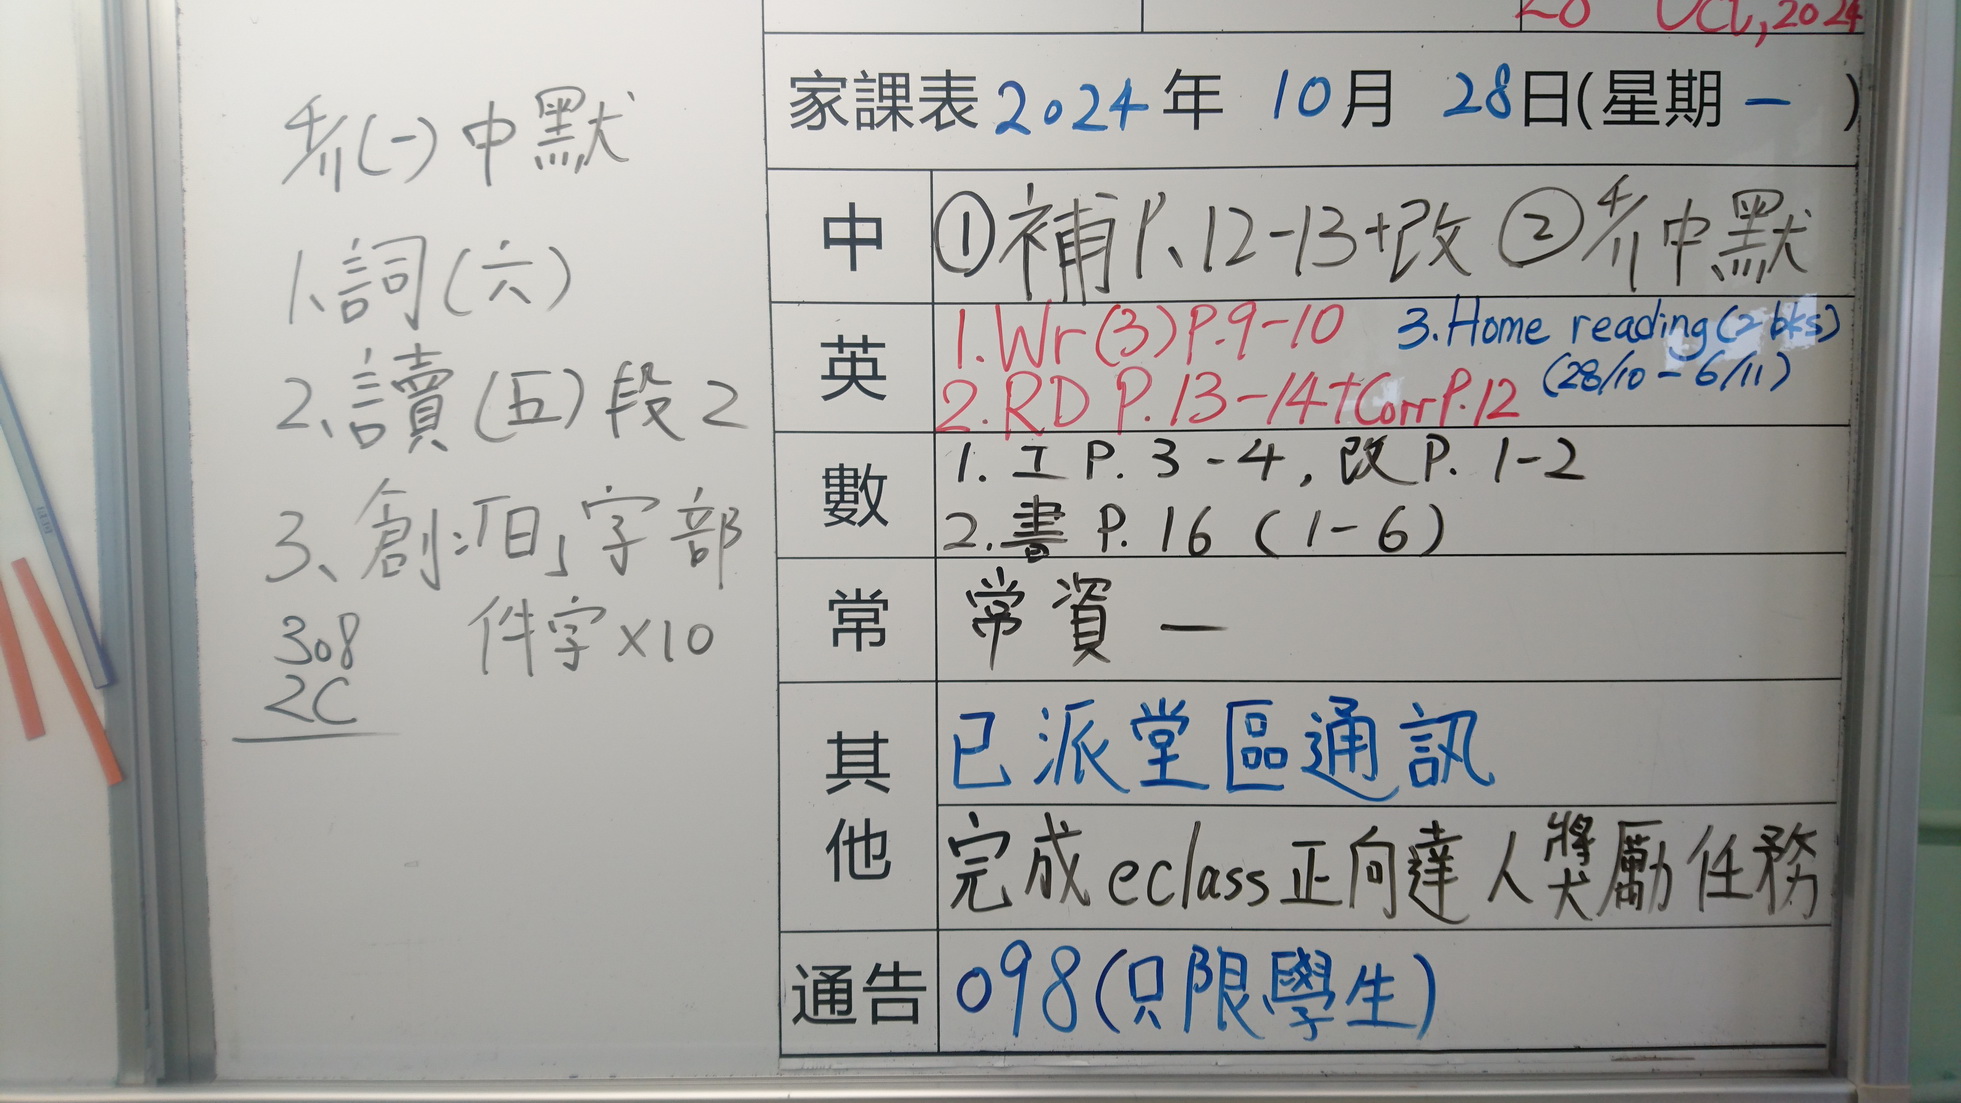 28 Oct, 2024
家課表 2024年 10月 28日(星期一 )
中 ①補P.12-13+改 ②4/11中默
英 1.Wr(3)P.9-10 3.Home reading(2 bks)
(28/10-6/11)
2.RD P.13-14+Corr P.12
數 1. 工 P. 3-4, 改 P. 1-2
2. 書 P. 16 (1-6)
常 常資一
其他 已派堂區通訊
完成eclass正向達人獎勵任務
通告 098(只限學生)
4/11(一)中默
1、詞(六)
2、讀(五)段2
3、創:「日」字部
件字×10
308
2C